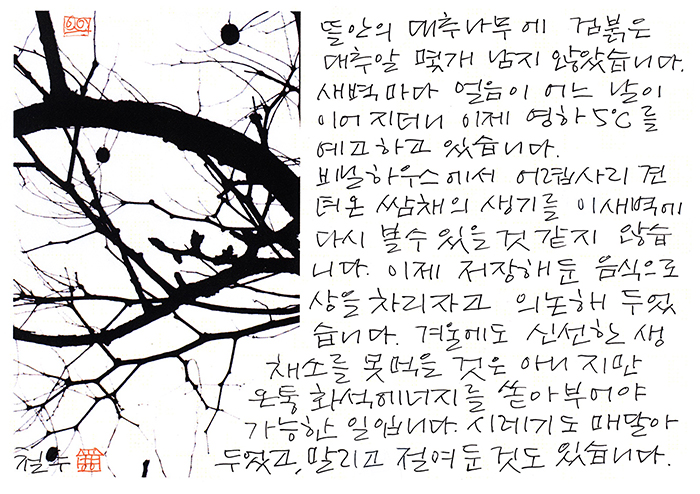 뜰안의 대추나무에 검붉은
대추알 몇개 남지 않았습니다.
새벽마다 얼음이 어느 날이
이어지더니 이제 영하 5℃를
예고하고 있습니다.
비닐하우스에서 어렵사리 견
뎌온 쌈채의 생기를 이새벽에
다시 볼수 있을 것 같지 않습
니다. 이제 저장해 둔 음식으로
상을 차리자고 의논해 두었
습니다. 겨울에도 신선한 생
채소를 못먹을 것은 아니지만
온통 화석에너지를 쏟아부어야
가능한 일입니다. 시레기도 매달아
두었고, 말리고 절여둔 것도 있습니다.
철수